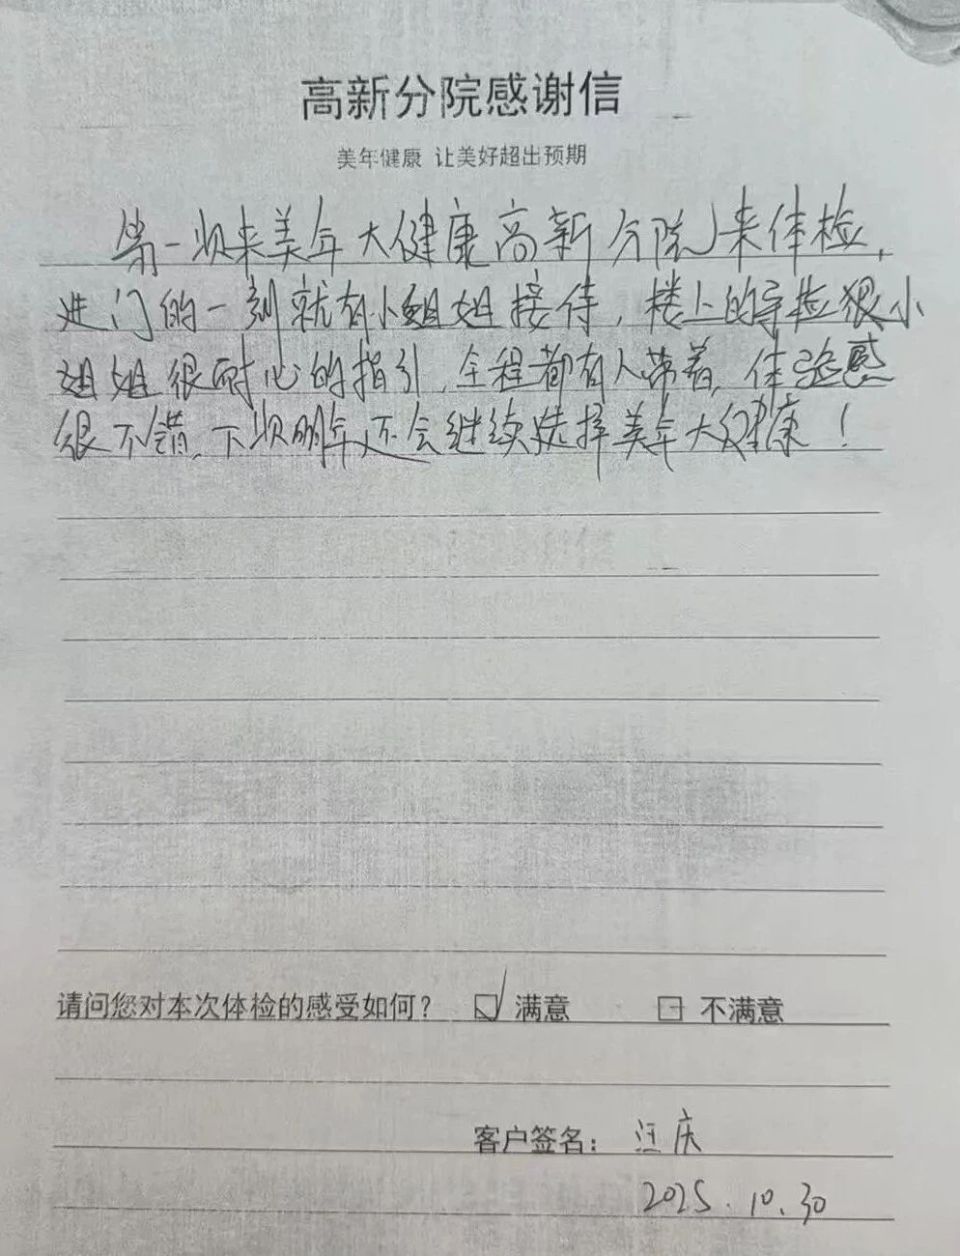 高新分院感谢信
美年健康 让美好超出预期
第一次来美年大健康高新分院来体检,
进门的一刻就有小姐姐接待,楼上的导检很小
姐姐很耐心的指引,全程都有人带着,体验感
很不错,下次明年还会继续选择美年大健康!
请问您对本次体检的感受如何? 满意 不满意
客户签名: 汪庆
2025.10.30